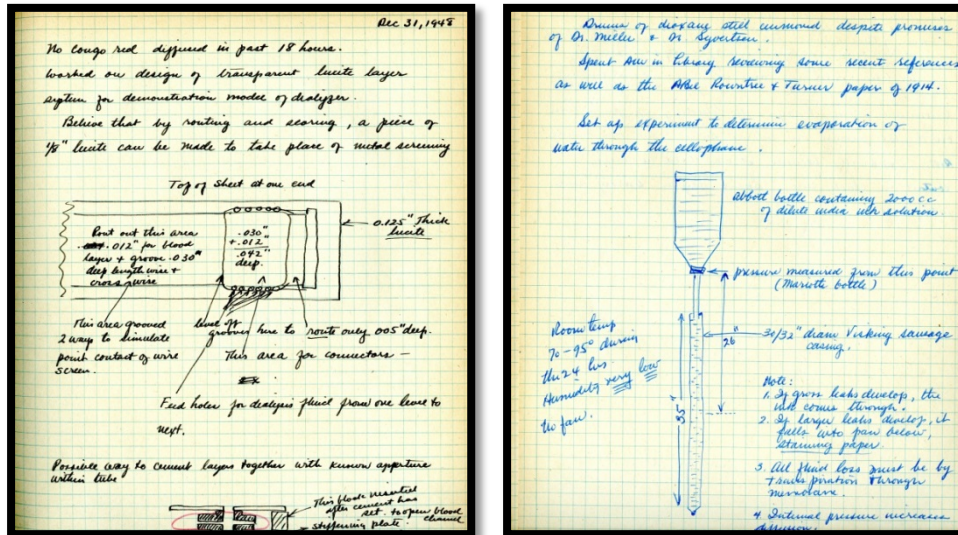 Dec 31, 1948
No Congo red diffused in past 18 hours.
Worked on design of transparent lucite layer
system for demonstration model of dialyzer.
Believe that by routing and scoring, a piece of
1/8" lucite can be made to take place of metal screening
Top of sheet at one end
Rout out this area
.012" for blood
layer + groove .030"
deep lengthwise +
crosswise
.030"
+.012
.042"
deep.
0.125" Thick
lucite
This area grooved
2 ways to simulate
point contact of wire
screen.
level off
grooves here to route only .005" deep.
This area for connectors -
Feed holes for dialysis fluid from one level to
next.
Possible way to cement layers together with known aperture
within tube
This block inserted
after cement has
set to open blood
channel
stiffening plate.
Drums of dioxane still unmoved despite promises
of Dr. Miller & Dr. Syvertson.
Spent AM in library reviewing some recent references
as well as the Abel Rowntree & Turner paper of 1914.
Set up experiment to determine evaporation of
water through the cellophane.
abbott bottle containing 2000cc
of dilute india ink solution.
pressure measured from this point
(Mariotte bottle)
26"
31/32" diam Visking sausage
casing.
35"
Room temp
70-95° during
the 24 hrs
Humidity very low
No fan.
Note:
1. If gross leaks develop, the
ink comes through.
2. If larger leaks develop, it
falls into pan below,
staining paper.
3. All fluid loss must be by
transpiration through
membrane.
4. Internal pressure increases
diffusion.